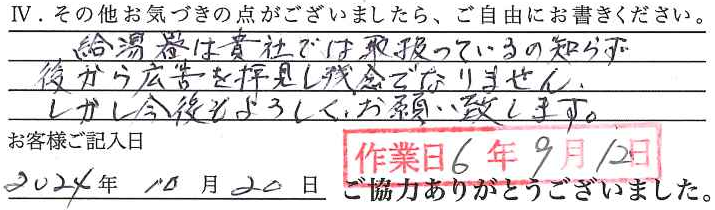 Ⅳ．その他お気づきの点がございましたら、ご自由にお書きください。
給湯器は貴社では取扱っているの知らず
後から広告を拝見し残念でなりません、
しかし今後もよろしくお願い致します。
お客様ご記入日
作業日6年9月12日
2024年 10月20日 ご協力ありがとうございました。